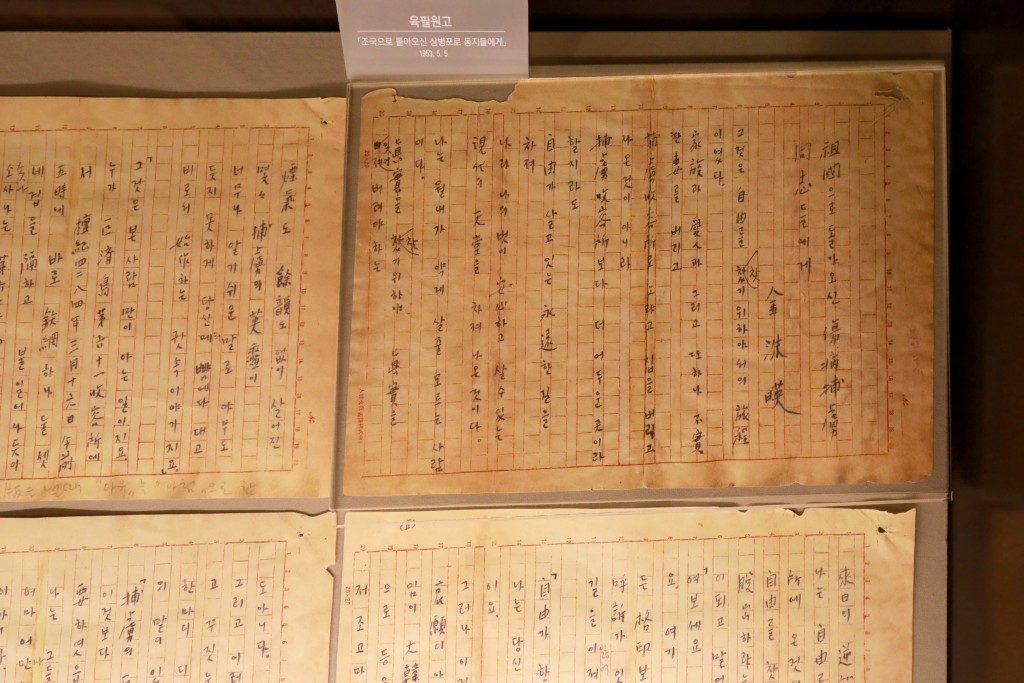 육필원고
「조국으로 돌아오신 상병포로 동지들에게」
1953. 5. 5
祖國으로 돌아오신 傷病捕虜
同志들에게
金洙暎
그것은 自由를 찾기 위하여서의 旅程
이었다.
家族과 愛人과 그리고 또하나 不實
한 妻를 버리고
捕虜收容所로 오라고 집을 버리고
나온것이 아니라
捕虜收容所보다 더 어두운 곳이라
할지라도
自由가 살고 있는 永遠한 길을
찾져
나와 나의 벗이 安心하고 살수있는
現代의 天堂을 찾져 나온것이다.
나는 원래가 약게 살줄 모르는 사람
이다.
眞實을 찾기위하여 眞實을
버려야하는
煙氣도 餘韻도 없이 살어진
몇몇 捕虜의 英靈이
너무나 알기쉬운 말로 아무도
듣지 못하게 당신에 뺨에다 대고
비로소 始作하는 귓속이야기지요
「그것은 본 사람 만이 아는 일이지요
누가 巨濟島 第六十一收容所에
서 檀紀四二八四年 三月十六日 午前
五時에 바로 鉄網 하나 둘 셋
네겹을 隔하고 불 일어나듯이
솟아나는
來日의 逆
나는 自由
所에 온것
自由를 찾
脫出하려
이되고 말
「여보세요
요. 여기
呼訴가
길을 이져
「自由가 항
나는 당신
어요.
그러나
哀願이 아
임이 大韓
으로 등
저 조고마
도아니다.
그리고 이러
고 꾸짖는
한마디
의 말이
「捕虜의
이것보다
要하였을
나는 그들